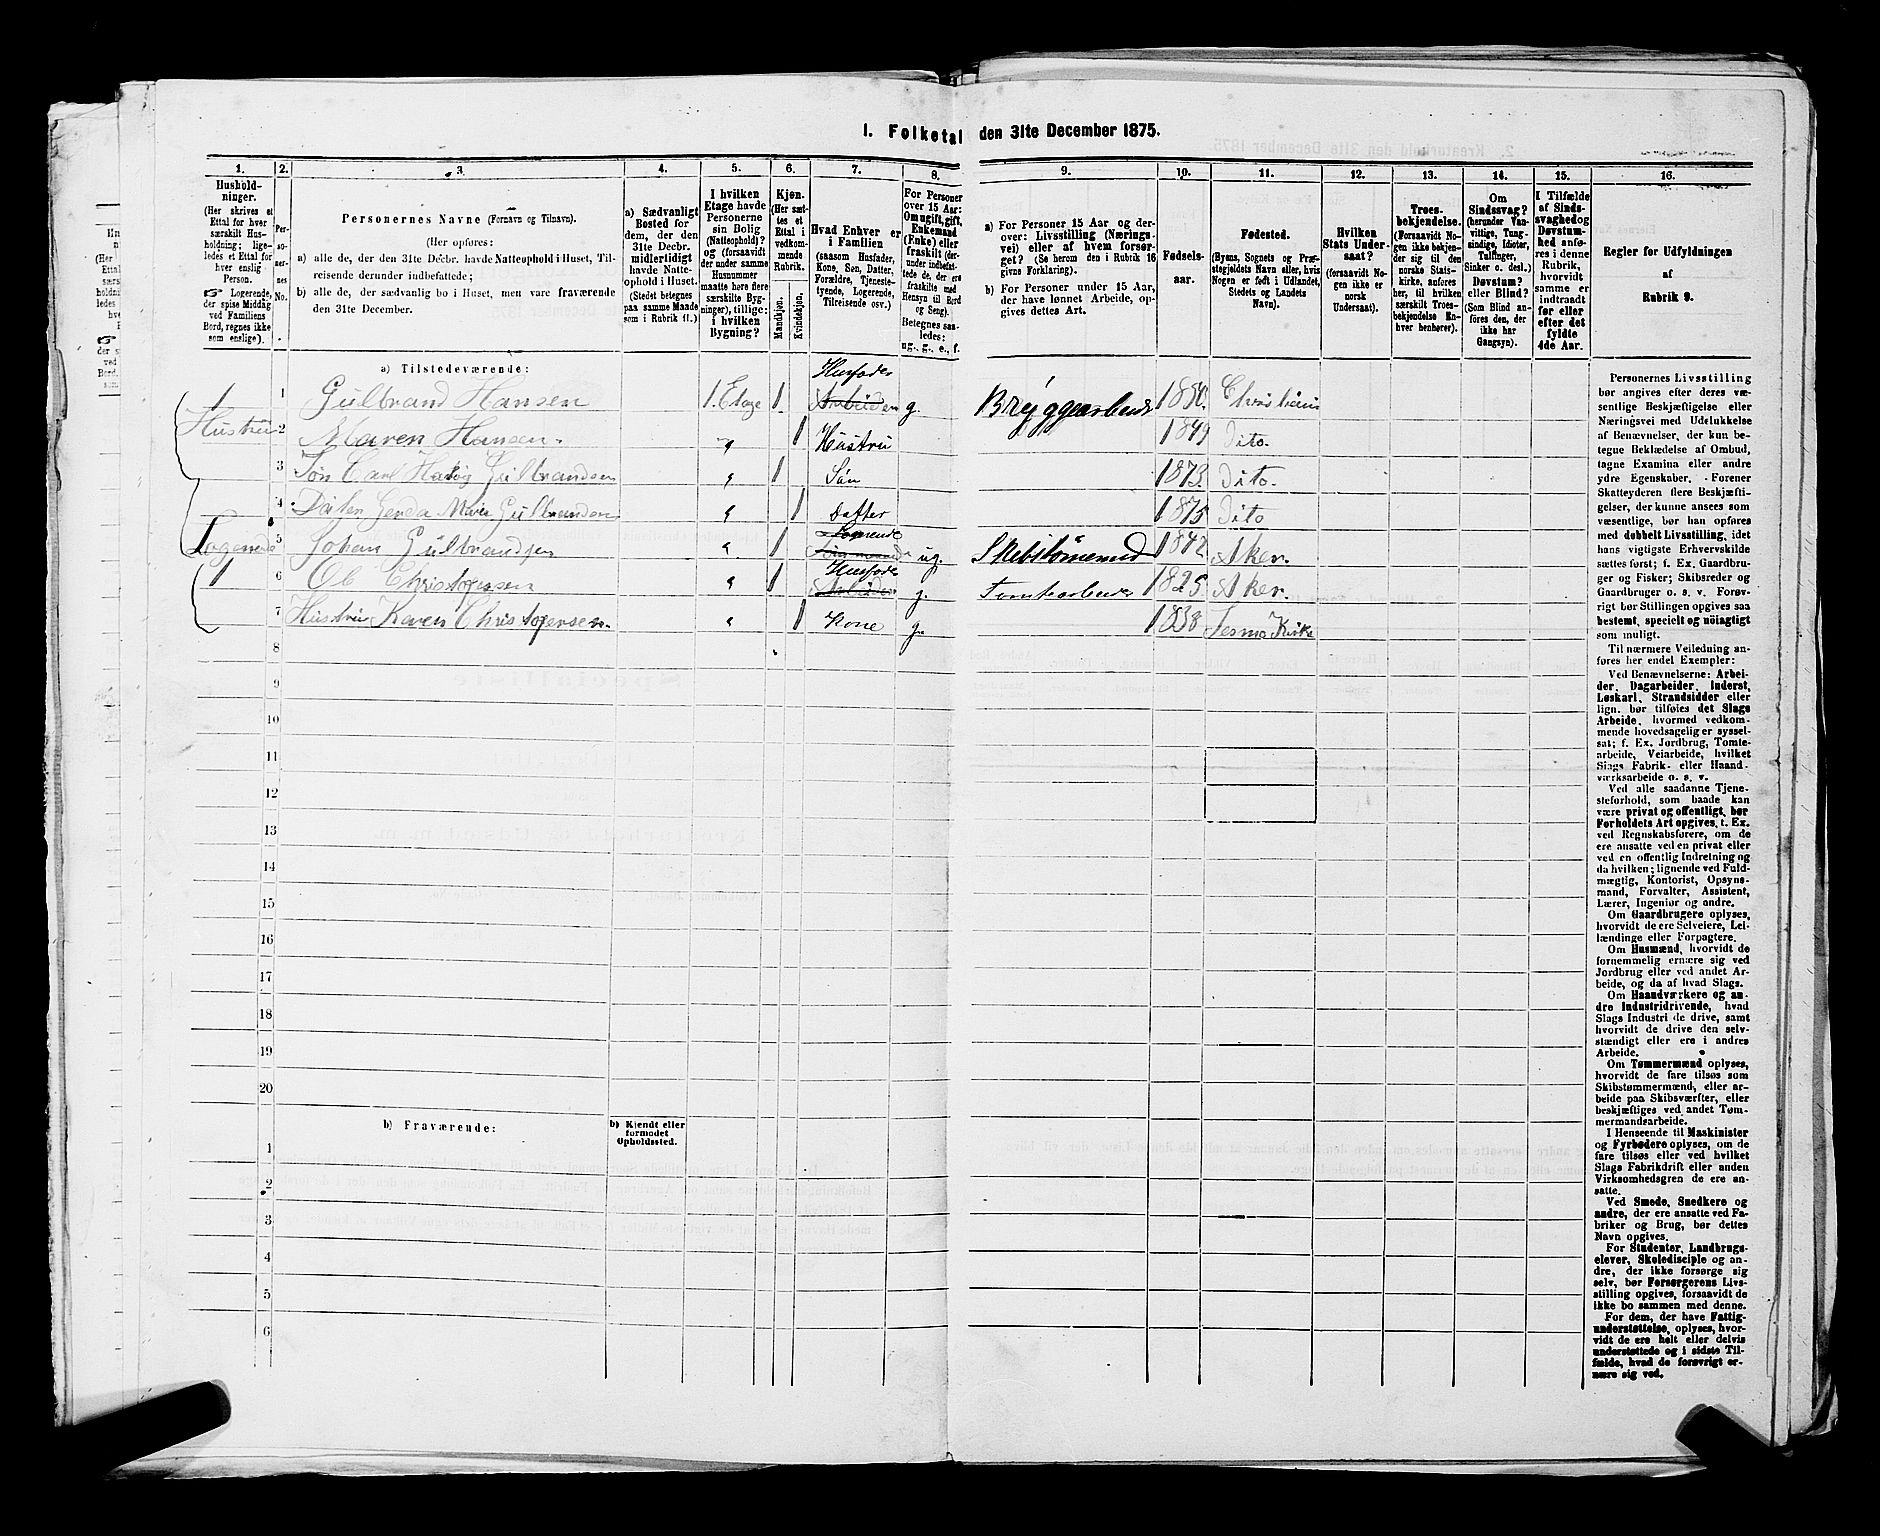 1. Folketal den 31te December 1875.
1. 2. 3. 4. 5. 6. 7. 8. 9. 10. 11. 12. 13. 14. 15. 16.
Hushold-
ninger.
(Her skrives et
Ettal for hver
særskilt Hus-
holdning; lige-
ledes et Ettal for
hver enslig
Person.
☞ Logerende,
der spise Middag
ved Familiens
Bord, regnes ikke
som enslige).
Per-
so-
ner-
nes
No.
Personernes Navne (Fornavn og Tilnavn).
(Her opføres:
a) alle de, der den 31te Decbr. havde Natteophold i Huset, Til-
reisende derunder indbefattede;
b) alle de, der sædvanlig bo i Huset, men vare fraværende
den 31te December.
a) Sædvanligt
Bosted for
dem, der den
31te Decbr.
midlertidigt
havde Natte-
ophold i Huset.
(Stedet betegnes
paa samme Maade
som i Rubrik 11.)
I hvilken
Etage havde
Personerne
sin Bolig
(Natteophold)?
og (forsaavidt
der under samme
Husnummer
maatte høre flere
særskilte Byg-
ninger), tillige:
i hvilken
Bygning?
Kjøn.
(Her sæt-
tes et
Ettal i
vedkom-
mende
Rubrik.
Mandkjøn.
Kvindekjøn.
Hvad Enhver er
i Familien
(saasom Husfader,
Kone, Søn, Datter,
Forældre, Tjeneste-
tyende, Logerende,
Tilreisende osv.)
For Personer
over 15 Aar:
Om ugift, gift,
Enkemand
(Enke) eller
fraskilt (der-
under indbefat-
tede de, der ere
fraskilte med
Hensyn til Bord
og Seng).
Betegnes saa-
ledes:
ug., g., e., f.
a) For Personer 15 Aar og der-
over: Livsstilling (Nærings-
vei) eller af hvem forsør-
get? (Se herom den i Rubrik 16
givne Forklaring).
b) For Personer under 15 Aar,
der have lønnet Arbeide, op-
gives dettes Art.
Fødsels-
aar.
Fødested.
(Byens, Sognets og Præ-
stegjeldets Navn eller, hvis
Nogen er født i Udlandet,
Stedets og Landets
Navn).
Hvilken
Stats Under-
saat?
(forsaavidt No-
gen ikke er
norsk
Undersaat).
Troes-
bekjendelse.
(Forsaavidt No-
gen ikke bekjen-
der sig til den
norske Stats-
kirke, anføres
her, til hvilken
særskilt Troes-
bekjendelse En-
hver henhører).
Om
Sindssvag?
(herunder Van-
vittige, Tung-
sindige, Idioter,
Tullinger,
Sinker o. desl.)
Døvstum?
eller Blind?
(Som Blind an-
føres den, der
ikke har
Gangsyn).
I Tilfælde
af Sinds-
svaghed og
Døvstum-
hed anfø-
res i denne
Rubrik,
hvorvidt
samme er
indtraadt
før eller
efter det
fyldte
4de Aar.
Regler for Udfyldningen
af
Rubrik 9.
a) Tilstedeværende:
1 1 Gulbrand Hansen 1. Etage 1. Husfader Arbeider g. Bryggearbeider 1850. Christiania
Hustru 2 Maren Hansen. " 1 Hustru 1849 Dito.
3 Søn Carl Gulbrandsen " 1 Søn 1873. Dito.
4 Gerda Marie Gulbrandsen " 1 Datter 1875 Dito
Logerende 5 Johan Gulbrandsen " 1 Logerende ug. Skibstømmermand 1842. Aker.
1 6 Ole Christophersen " 1 Husfader Arbeider g. Tomtearbeider 1825. Aker.
7 Hustru Karen Christophersen. " 1 Kone g. 1838 Kirke
8
9
10
11
12
13
14
15
16
17
18
19
20
b) Fraværende: b) Kjendt eller
formodet
Opholdssted.
1
2
3
4
5
6
Personernes Livsstilling
bør angives efter deres væ-
sentlige Beskjæftigelse eller
Næringsvei med Udelukkelse
af Benævnelser, der kun be-
tegne Beklædelse af Ombud,
tagne Examina eller andre
ydre Egenskaber. Forener
Skatteyderen flere Beskjæfti-
gelser, der kunne ansees som
væsentlige, bør han opføres
med dobbelt Livsstilling, idet
hans vigtigste Erhvervskilde
sættes først; f. Ex. Gaardbru-
ger og Fisker; Skibsreder og
Gaardbruger o. s. v. Forøv-
rigt bør Stillingen opgives saa
bestemt, specielt og nøiagtigt
som muligt.
Til nærmere Veiledning an-
føres her endel Exempler:
Ved Benævnelserne: Arbei-
der, Dagarbeider, Inderst,
Løskarl, Strandsidder eller
lign. bør tilføies det Slags
Arbeide, hvormed vedkom-
mende hovedsagelig er syssel-
sat; f. Ex. Jordbrug, Tomte-
arbeide, Veiarbeide, hvilket
Slags Fabrik- eller Haand-
værksarbeide o. s. v.
Ved alle saadanne Tjene-
steforhold, som baade kan
være privat og offentligt, bør
Forholdets Art opgives, t. Ex.
ved Regnskabsførere, om de
ere ansatte ved en privat eller
ved en offentlig Indretning og
da hvilken; lignende ved Fuld-
mægtig, Kontorist, Opsyns-
mand, Forvalter, Assistent,
Lærer, Ingeniør og andre.
Om Gaardbrugere oplyses,
hvorvidt de ere Selveiere, Lei-
lændinge eller Forpagtere.
Om Husmænd, hvorvidt de
fornemmelig ernære sig ved
Jordbrug eller ved andet Ar-
beide, og da af hvad Slags.
Om Haandværkere og an-
dre Industridrivende, hvad
Slags Industri de drive, samt
hvorvidt de drive den selv-
stændigt eller ere i andres
Arbeide.
Om Tømmermænd oplyses,
hvorvidt de fare tilsøs som
Skibstømmermænd, eller ar-
beide paa Skibsværfter, eller
beskjæftiges ved andet Tøm-
mermandsarbeide.
I Henseende til Maskinister
og Fyrbødere oplyses, om de
fare tilsøs eller ved hvilket
Slags Fabrikdrift eller anden
Virksomhedsgren de ere an-
satte.
Ved Smede, Snedkere og
andre, der ere ansatte ved Fa-
briker og Brug, bør dettes
Navn opgives.
For Studenter, Landbrugs-
elever, Skoledisciple og an-
dre, der ikke forsørge sig
selv, bør Forsørgerens Livs-
stilling opgives, forsaavidt de
ikke bo sammen med denne.
For dem, der have Fattig-
understøttelse, oplyses, hvor-
vidt de ere helt eller delvis
understøttede og i sidste Til-
fælde, hvad de forøvrigt er-
nære sig ved.